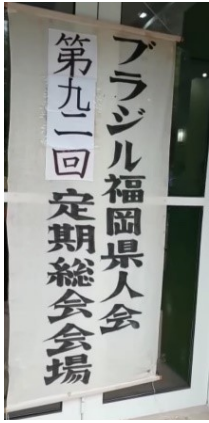 ブラジル福岡県人会
第九二回 定期総会会場